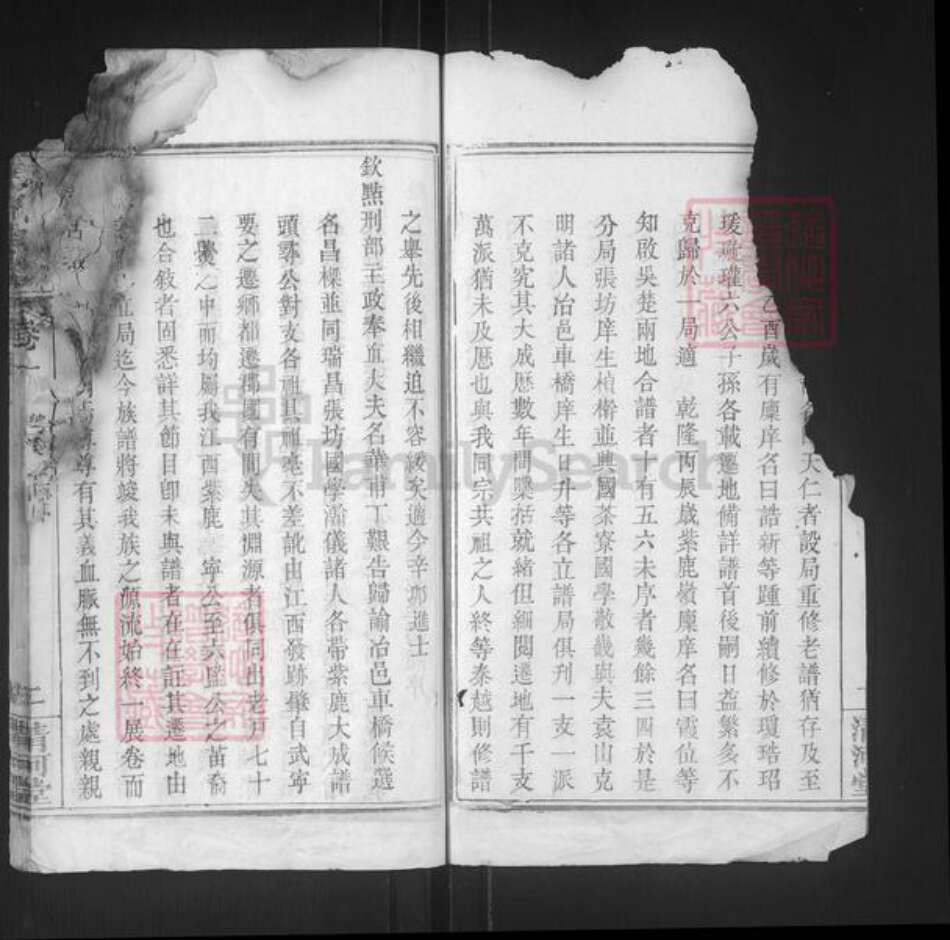 天仁者設局重修老譜猶存及至
乙酉歲有廩庠名曰誥新等踵前續修於瓊琣玿
瑗璥瓘六公子孫各載遷地備詳譜首後嗣日益繁多不
克歸於一局適 乾隆丙辰歲紫鹿嶺廩庠名曰霞位等
知啟吳楚兩地合譜者十有五六未序者幾餘三四於是
分局張坊庠生楨槠並興國茶寮國學散畿與夫袁山克
明諸人冶邑車橋庠生日升等各立譜局俱刋一支一派
不克究其大成歴數年間槩括就緒但細閱遷地有千支
萬派猶未及歴也與我同宗共祖之人終等秦越則修譜
之舉先後相繼迫不容緩矣適今辛卯進士
欽點刑部主政奉直大夫名華甫丁艱告歸諭冶邑車橋候選
名昌樑並同瑞昌張坊國學瀚儀諸人各帶紫鹿大成譜
頭彞公對支各祖其誕薨不差訛由江西發跡肇自武寧
要之遷鄉都遷郡國有間失其淵源者俱同出老戸七十
二疊之中而均屬我江西紫鹿 寧公至六監公之苗裔
也合敍者固悉詳其節目卽未與譜者在在註其遷地由
立局迄今族譜將竣我族之源流始終一展卷而
尊有其義血脈無不到之處親親
清河堂
清河堂
FamilySearch